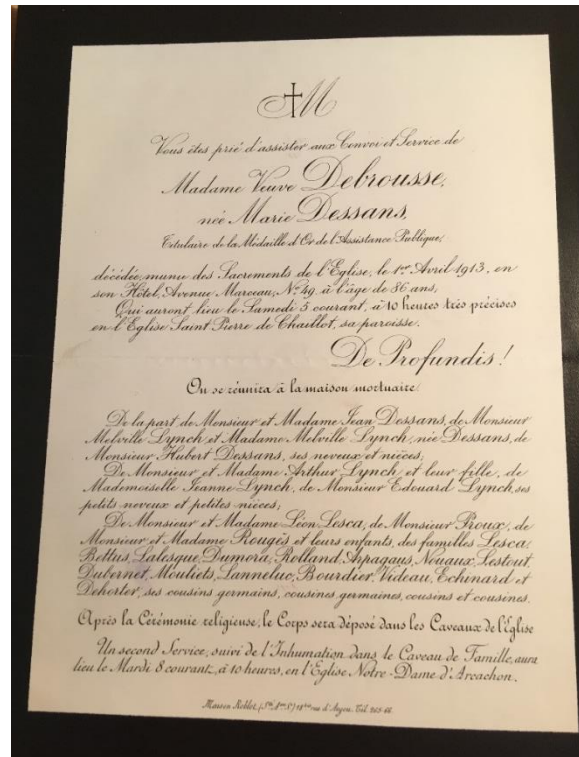 M
Vous êtes prié d'assister aux Convoi et Service de
Madame Veuve Debrousse,
née Marie Dessans,
Titulaire de la Médaille d'Or de l'Assistance Publique,
décédée, munie des Sacrements de l'Église, le 1er Avril 1913, en
son Hôtel, Avenue Marceau, No 49, à l'âge de 86 ans,
Qui auront lieu le Samedi 5 courant, à 10 heures très précises
en l'Église Saint Pierre de Chaillot, sa paroisse.
De Profundis !
On se réunira à la maison mortuaire.
De la part de Monsieur et Madame Jean Dessans, de Monsieur
Melville Lynch et Madame Melville Lynch, née Dessans, de
Monsieur Hubert Dessans, ses neveux et nièces;
De Monsieur et Madame Arthur Lynch et leur fille, de
Mademoiselle Jeanne Lynch, de Monsieur Edouard Lynch, ses
petits neveux et petites nièces;
De Monsieur et Madame Léon Lesca, de Monsieur Proux, de
Monsieur et Madame Rougis et leurs enfants, des familles Lesca,
Bettus, Lalesque, Dumora, Rolland, Arpagaus, Nouaux, Lestout,
Dubernet, Mouliets, Lanneluc, Bourdier, Videau, Echinard et
Dehorter, ses cousins germains, cousines germaines, cousins et cousines.
Après la Cérémonie religieuse, le Corps sera déposé dans les Caveaux de l'Église
Un second Service, suivi de l'Inhumation dans le Caveau de Famille, aura
lieu le Mardi 8 courant, à 10 heures, en l'Église Notre-Dame d'Arcachon.
Maison Roblot, rue d'Tél.